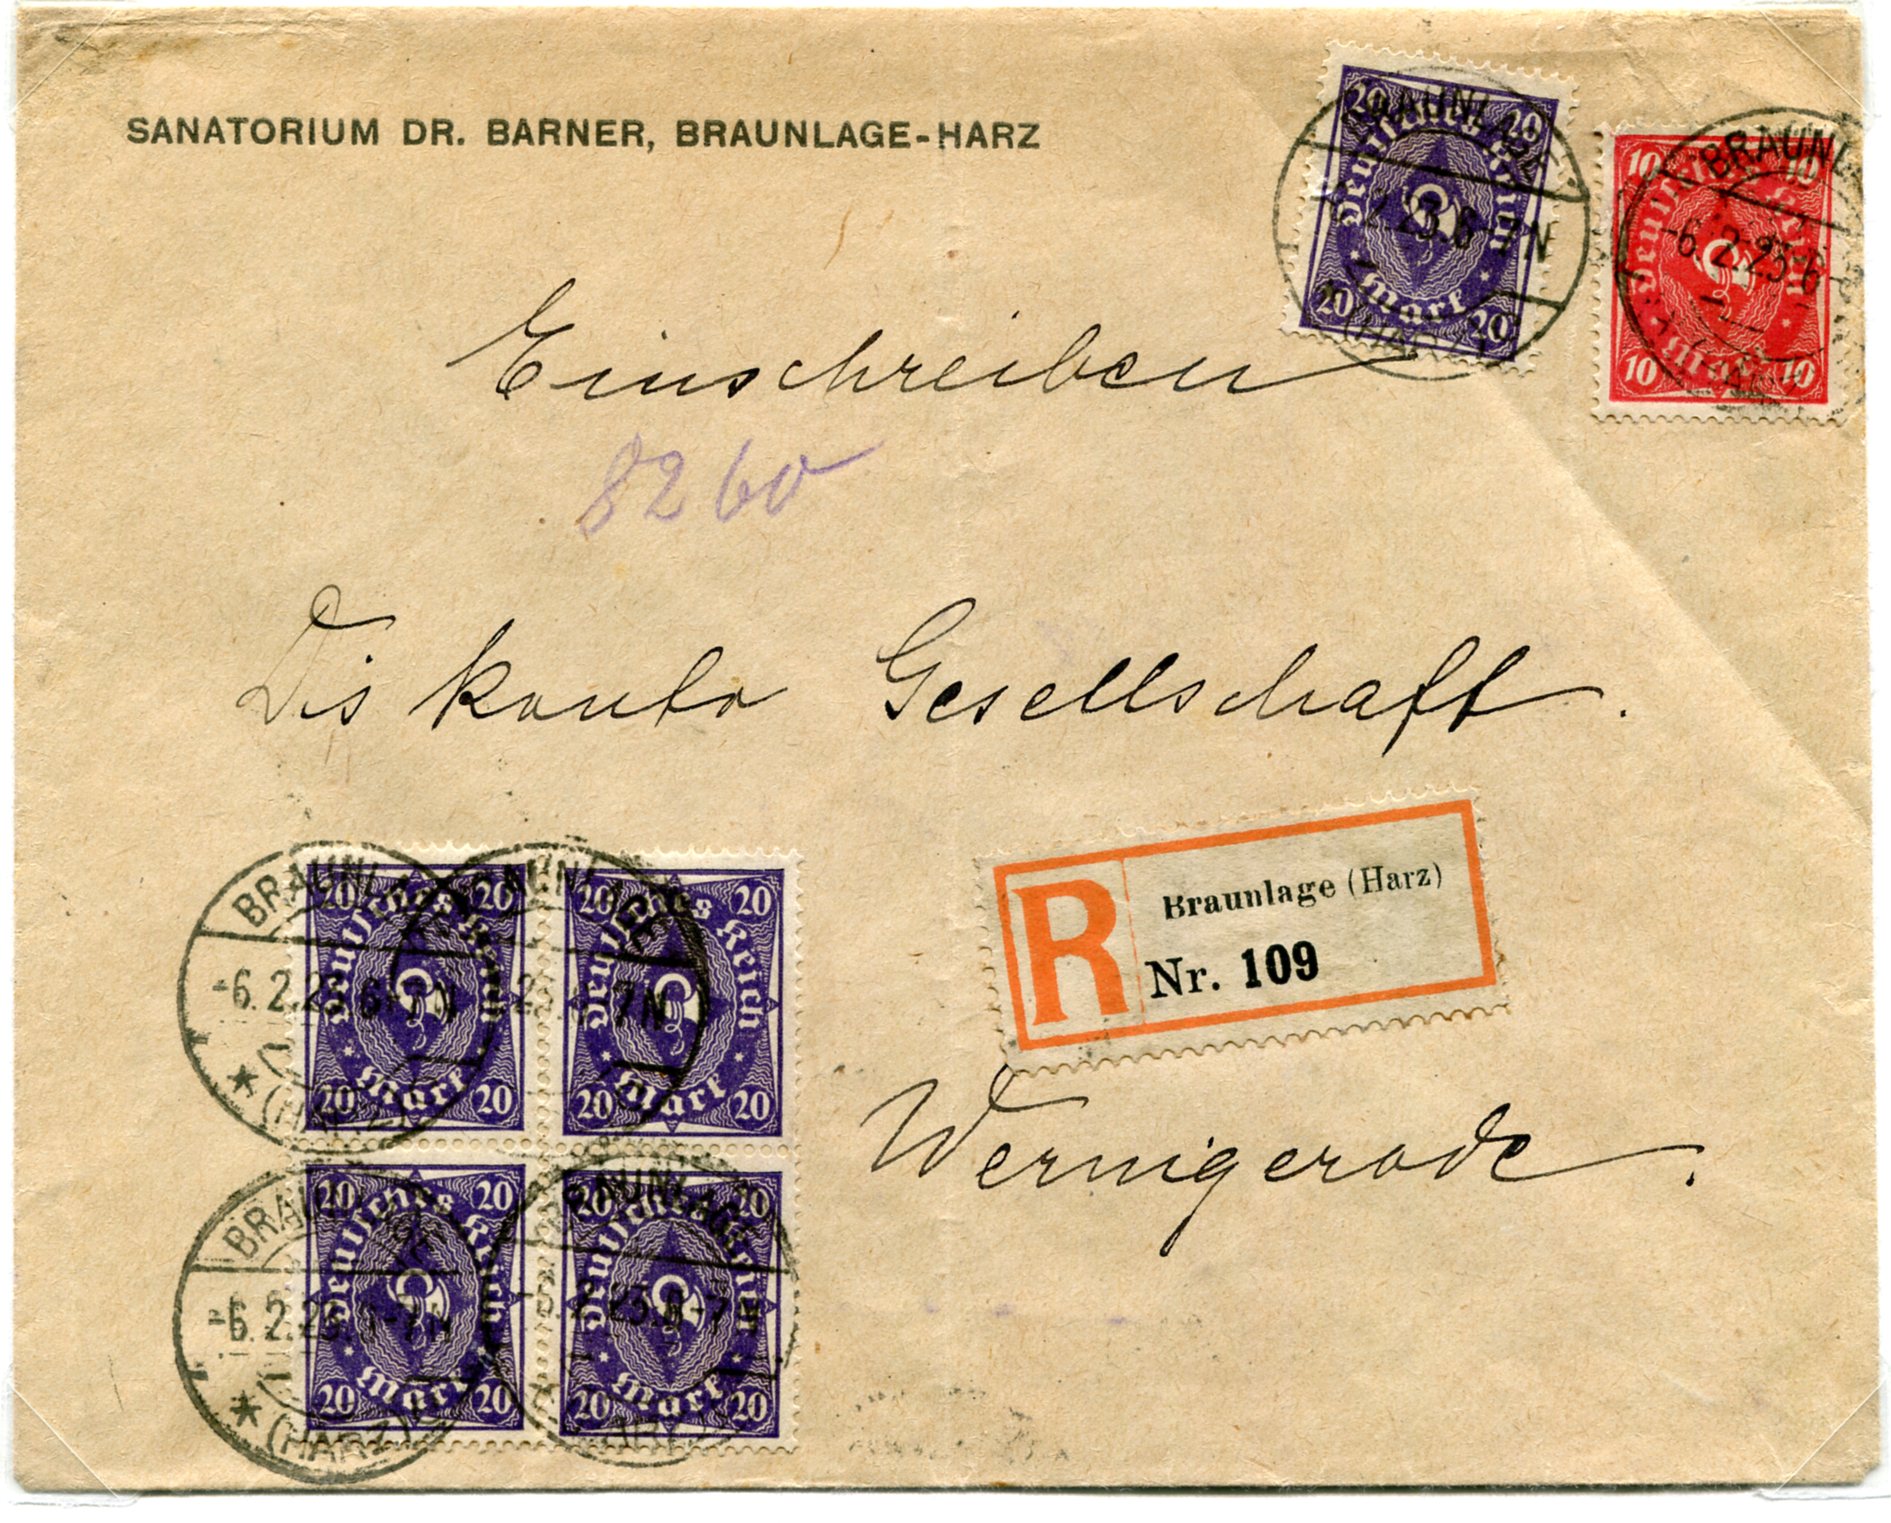 SANATORIUM DR. BARNER, BRAUNLAGE-HARZ
20 20
Deutsches Reich
Mark
20 20
BRAUNLAGE
2.23.6-7N
(HARZ)
10 10
Deutsches Reich
Mark
10 10
BRAUNL
-6.2.23.6-
Einschreiben
8260
Diskonto Gesellschaft.
R
Braunlage (Harz)
Nr. 109
Wernigerode.
20 20
Deutsches Reich
Mark
20 20
BRAUNLAGE
-6.2.23.6-7N
* (HARZ)
20 20
Deutsches Reich
Mark
20 20
BRAUNLAGE
23. 7N
20 20
Deutsches Reich
Mark
20 20
BRAUNLAGE
-6.2.23. -7N
* (HARZ)
20 20
Deutsches Reich
Mark
20 20
BRAUNLAGE
2.23.6-7N
(HARZ)